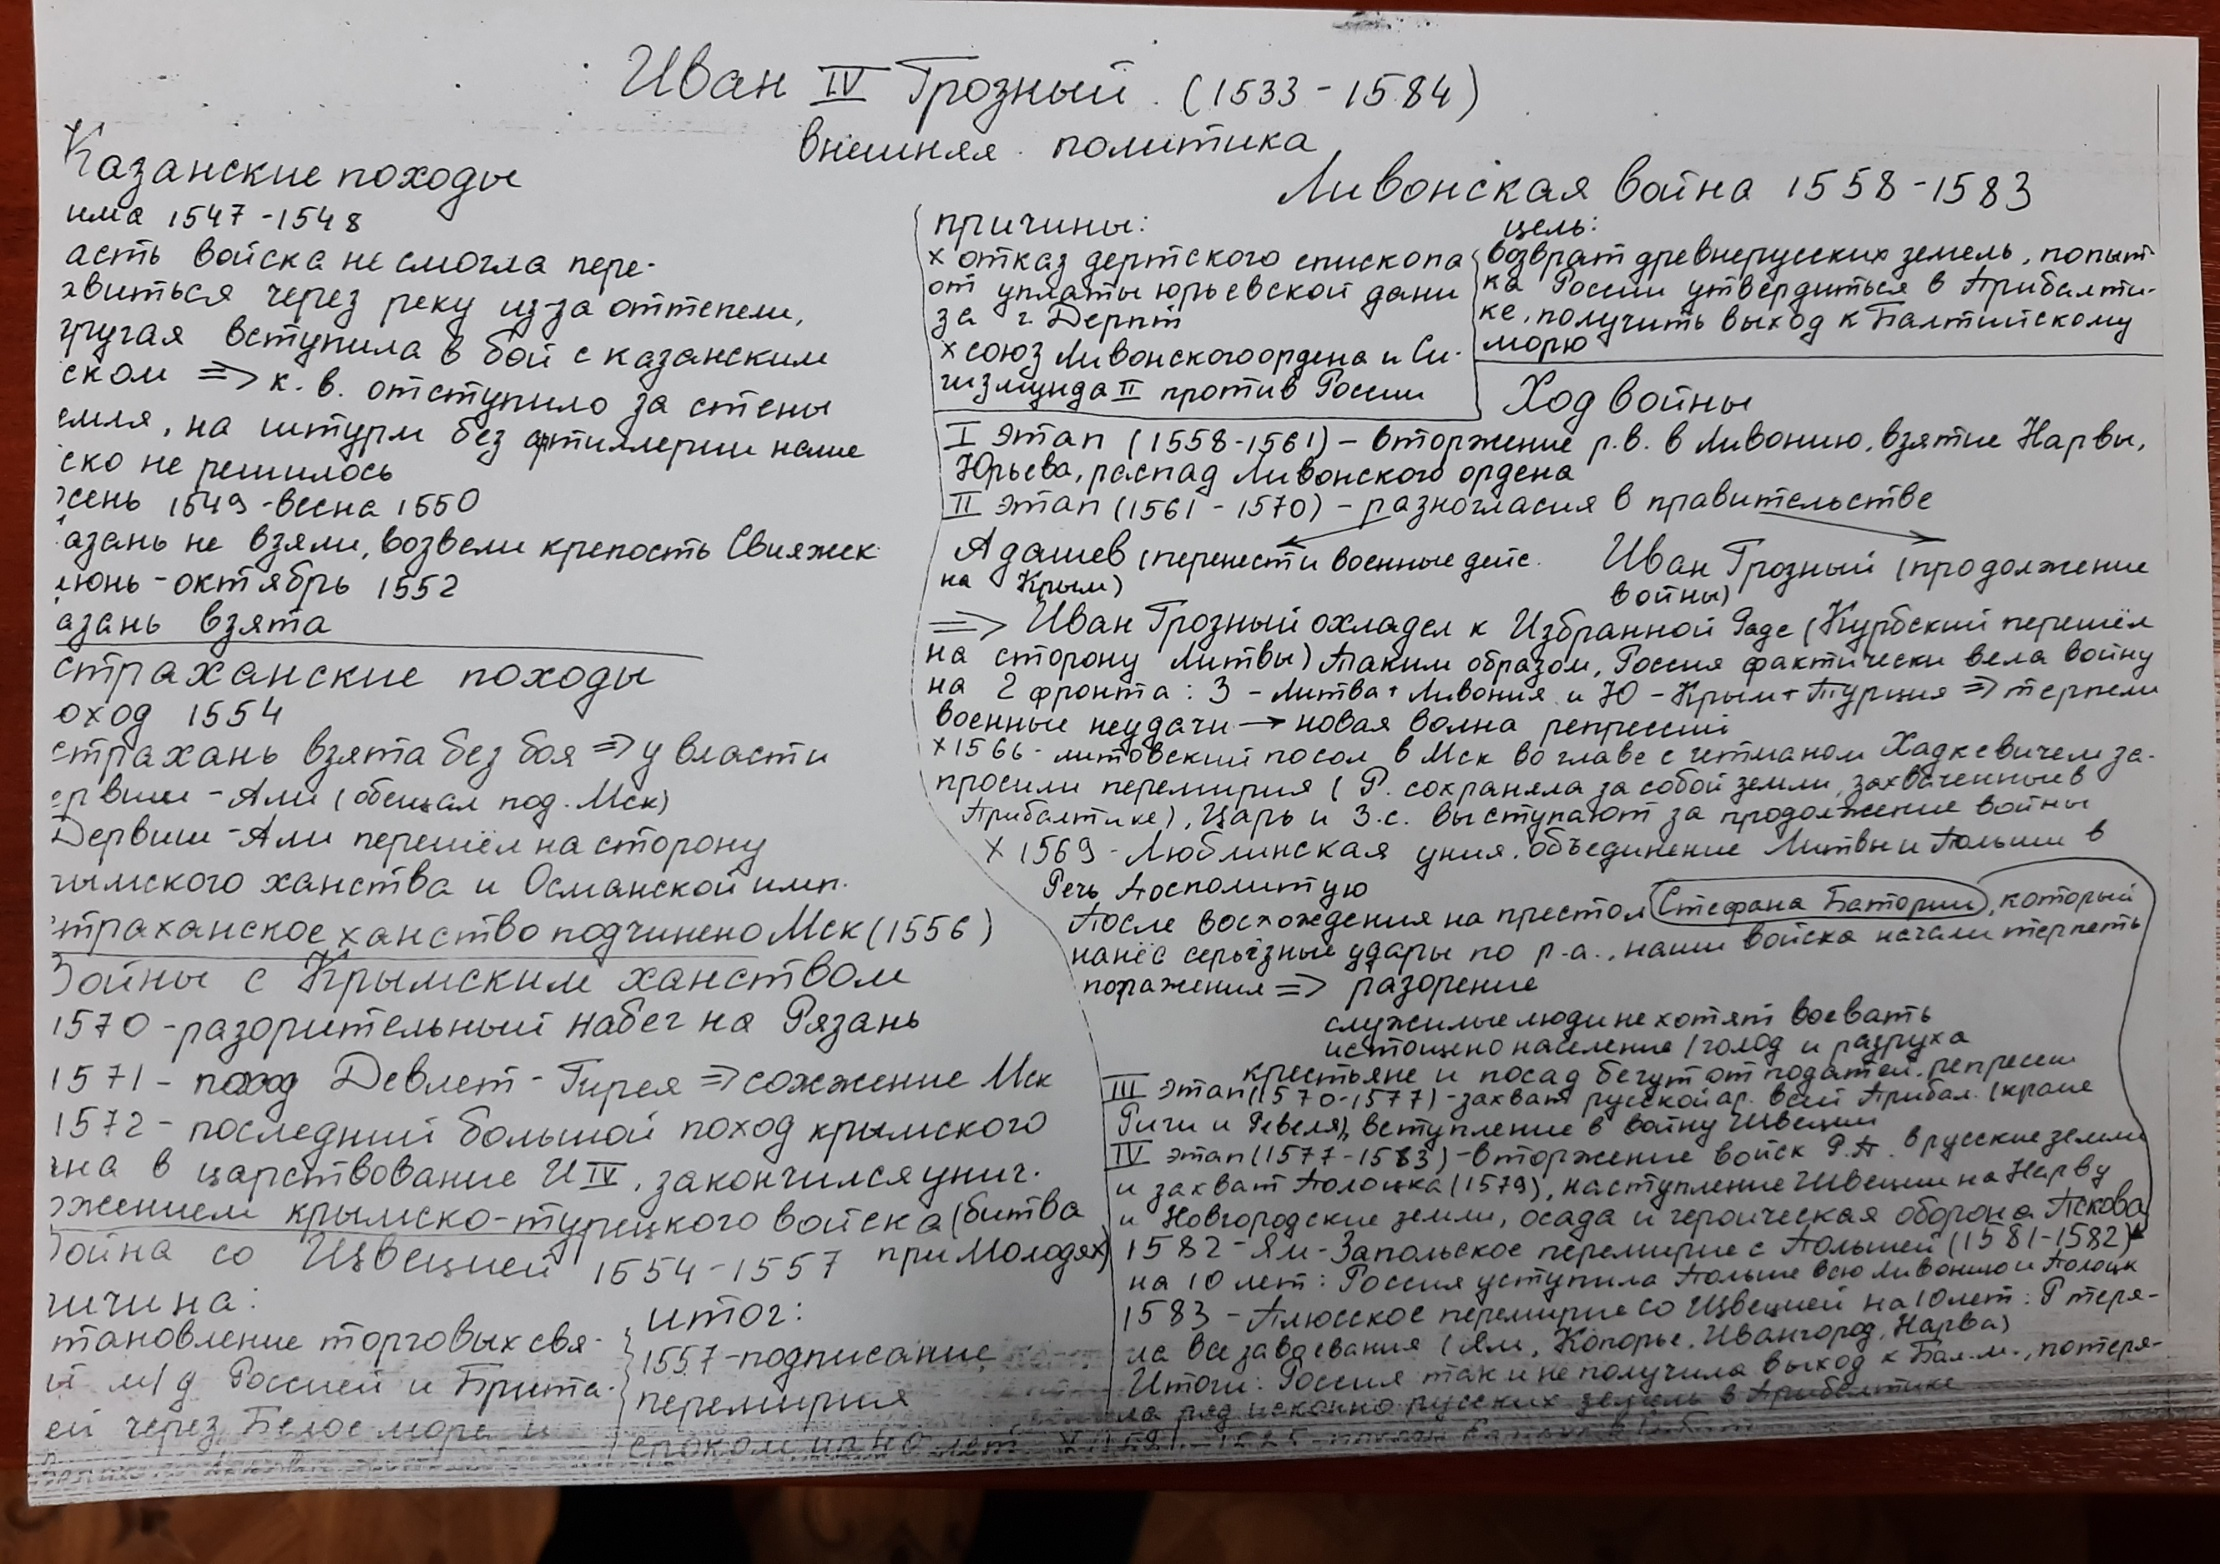 Иван IV Грозный (1533-1584)
внешняя политика
Казанские походы
има 1547-1548
асть войска не смогла пере-
авиться через реку из-за оттепели,
другая вступила в бой с казанским
ском => к. в. отступило за стены
емля, на штурм без артиллерии наше
ско не решилось
сень 1549-весна 1550
азань не взяли, возвели крепость Свияжск
июнь-октябрь 1552
азань взята
страханские походы
оход 1554
страхань взята без боя => у власти
ервиш-Али (обещал под. Мск)
Дервиш-Али перешёл на сторону
рымского ханства и Османской имп.
страханское ханство подчинено Мск (1556)
Войны с Крымским ханством
1570-разорительный набег на Рязань
1571- поход Девлет-Гирея => сожжение Мск
1572- последний большой поход крымского
на в царствование И IV, закончился унич.
жением крымско-турецкого войска (битва
при Молодях)
ойна со Швецией 1554-1557
ичина:
тановление торговых свя-
й м/д Россией и Брита-
ей через Белое море и
итог:
1557-подписание
перемирия
сроком на 40 лет
Ливонская война 1558-1583
причины:
х отказ дерптского епископа
от уплаты юрьевской дани
за г. Дерпт
х союз Ливонского ордена и Си-
гизмунда II против России
цель:
возврат древнерусских земель, попыт
ка России утвердиться в Прибалти-
ке, получить выход к Балтийскому
морю
Ход войны
I этап (1558-1561) - вторжение р.в. в Ливонию, взятие Нарвы,
Юрьева, распад Ливонского ордена
II этап (1561-1570) - разногласия в правительстве
Адашев (перенести военные дейс.
на Крым)
Иван Грозный (продолжение
войны)
=> Иван Грозный охладел к Избранной Раде (Курбский перешёл
на сторону Литвы) Таким образом, Россия фактически вела войну
на 2 фронта: З - Литва + Ливония и Ю - Крым + Турция => терпели
военные неудачи → новая волна репрессий
х 1566- литовский посол в Мск во главе с гетманом Хадкевичем за-
просили перемирия (Р. сохраняла за собой земли, захваченные в
Прибалтике), Царь и З.с. выступают за продолжение войны
х 1569-Люблинская уния. объединение Литвы и Польши в
Речь Посполитую
После восхождения на престол Стефана Батории, который
нанёс серьёзные удары по р.а., наши войска начали терпеть
поражения => разорение
служилые люди не хотят воевать
истощено население (голод и разруха
крестьяне и посад бегут от податей, репрессии
III этап (1570-1577)-захват русской ар. всей Прибал. (кроме
Риги и Ревеля), вступление в войну Швеции
IV этап (1577-1583)-вторжение войск Р.П. в русские земли
и захват Полоцка (1579), наступление Швеции на Нарву
и Новгородские земли, осада и героическая оборона Пскова
(1581-1582)
1582-Ям-Запольское перемирие с Польшей
на 10 лет: Россия уступила Польше всю Ливонию и Полоцк
1583-Плюсское перемирие со Швецией на 10 лет: Р теря-
ла все завоевания (Ям, Копорье, Ивангород, Нарва)
Итоги: Россия так и не получила выход к Бал.м., потеря-
ла ряд исконно русских земель в Прибалтике